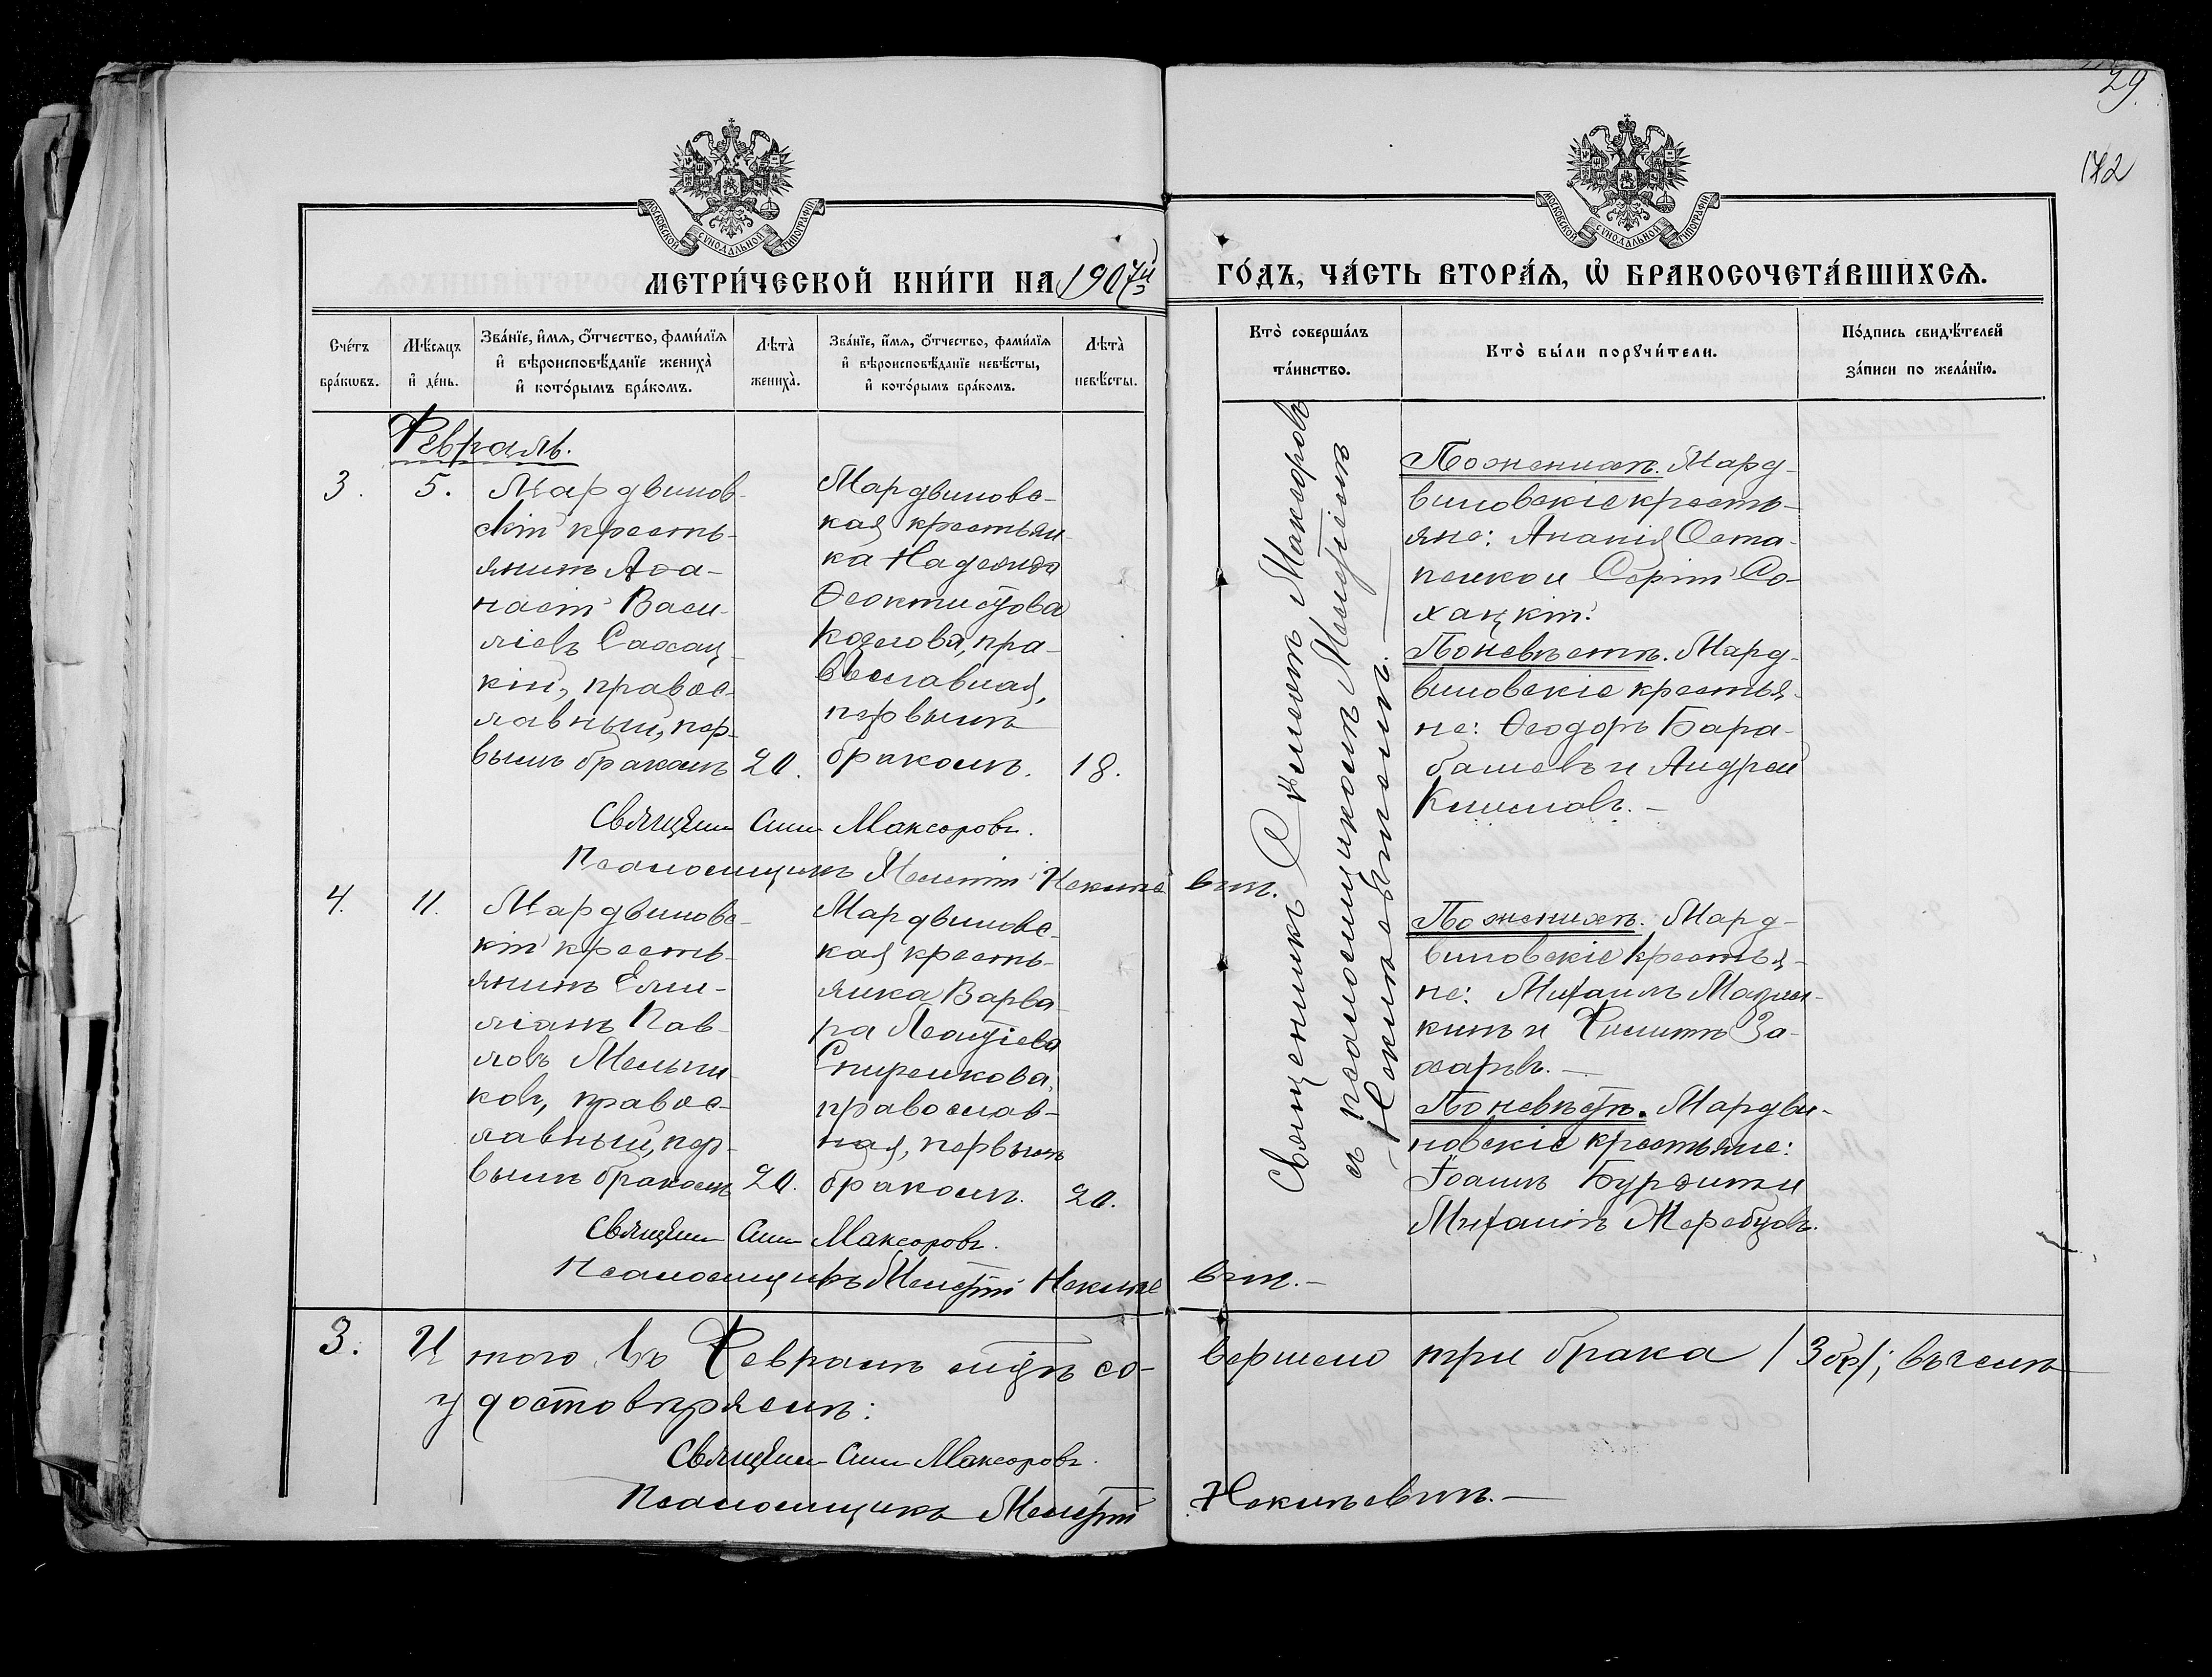 29.
142
МОСКОВСКОЙ СѴНОДАЛЬНОЙ ТИПОГРАФІИ
МОСКОВСКОЙ СѴНОДАЛЬНОЙ ТИПОГРАФІИ
МЕТРИ́ЧЕСКОЙ КНИ́ГИ НА 1907й
ГО́ДЪ, ЧА́СТЬ ВТОРА́Я, Ѡ҆ БРАКОСОЧЕТА́ВШИХСЯ.
Сче́тъ бра́кѡвъ.
Мѣ́сяцъ и҆ де́нь.
Зва́нїе, и҆́мя, ѻ҆́тчество, фами́лїя
и҆ вѣроисповѣ́данїе жениха̀
и҆ кото́рымъ бра́комъ.
Лѣта̀ жениха̀.
Зва́нїе, и҆́мя, ѻ҆́тчество, фами́лїя
и҆ вѣроисповѣ́данїе невѣ́сты,
и҆ кото́рымъ бра́комъ.
Лѣта̀ невѣ́сты.
Кто̀ соверша́лъ
та́инство.
Кто̀ бы́ли порꙋчи́тели.
По́дпись свидѣ́телей
за́писи по жела́нїю.
Февраль.
3.
5.
Мардвинов-
скій кресть-
янинъ Аѳа-
насій Васи-
ліевъ Сахац-
кій, правос-
лавный, пер-
вымъ бракомъ
20.
Мардвиновс-
кая крестьян
ка Надежда
Ѳеоктистова
Козлова, пра-
вославная,
первымъ
бракомъ.
18.
Священникъ Симеонъ Максоровъ
и псаломщикомъ Мелетіемъ
Некилевичемъ.
По женихѣ. Мард-
виновскіе кресть-
яне: Ананія Оста-
пенко и Сергій Со-
хацкій.
По невѣстѣ. Мард-
виновскіе крестья-
не: Ѳеодоръ Бара-
башевъ и Андрей
Климовъ. —
Священ. Сим. Максоровъ.
Псаломщикъ Мелетій Некиле
вич.
4.
11.
Мардвиновс-
кій кресть-
янинъ Еми-
ліанъ Пав-
ловъ Мельни-
ковъ, правос-
лавный, пер-
вымъ бракомъ
20.
Мардвиновс-
кая кресть-
янка Варва-
ра Леонтіева
Спиренкова,
православ-
ная, первымъ
бракомъ.
20.
По женихѣ. Мард-
виновскіе крестья-
не: Михаилъ
и Филиппъ За-
харовъ. —
По невѣстѣ. Мардви-
новскіе крестьяне:
Іоаннъ и
Михаилъ Жеребцовъ.
Священ. Сим. Максоровъ.
Псаломщикъ Мелетій Некиле
вич. —
3.
Итого въ Февралѣ мцѣ со-
вершено три брака /3 бр/; въ чемъ
удостовѣряемъ:
Священ. Сим. Максоровъ.
Псаломщикъ Мелетій
Некилевичъ. —